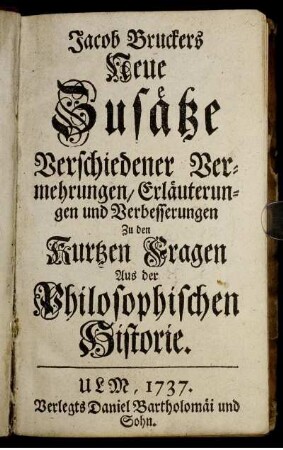 Jacob Bruckers
Neue
Zusätze
Verschiedener Ver-
mehrungen/ Erläuterun-
gen und Verbesserungen
Zu den
Kurtzen Fragen
Aus der
Philosophischen
Historie.
ULM, 1737.
Verlegts Daniel Bartholomäi und
Sohn.